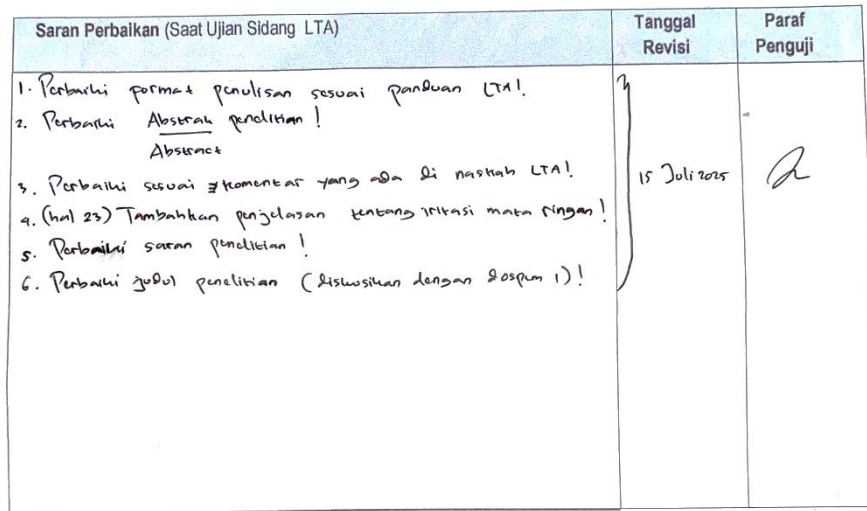 Saran Perbaikan (Saat Ujian Sidang LTA)
Tanggal Revisi
Paraf Penguji
1. Perbaiki format penulisan sesuai panduan LTA!
2. Perbaiki Abstrak penelitian!
Abstract
3. Perbaiki sesuai komentar yang ada di naskah LTA!
4. (hal 23) Tambahkan penjelasan tentang iritasi mata ringan!
5. Perbaiki saran penelitian!
6. Perbaiki judul penelitian (diskusikan dengan dospem 1)!
15 Juli 2025